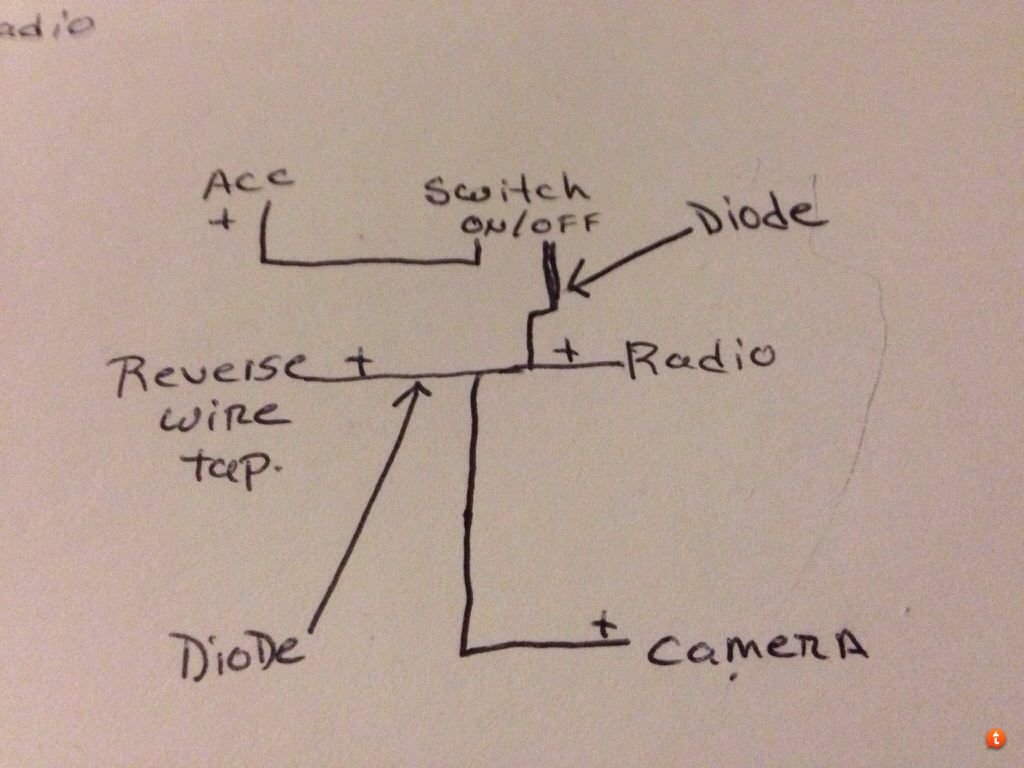 adio
Acc
+
Switch
ON/OFF
Diode
Reverse
wire
tap.
+
+
Radio
DioDe
+
CameRA
t